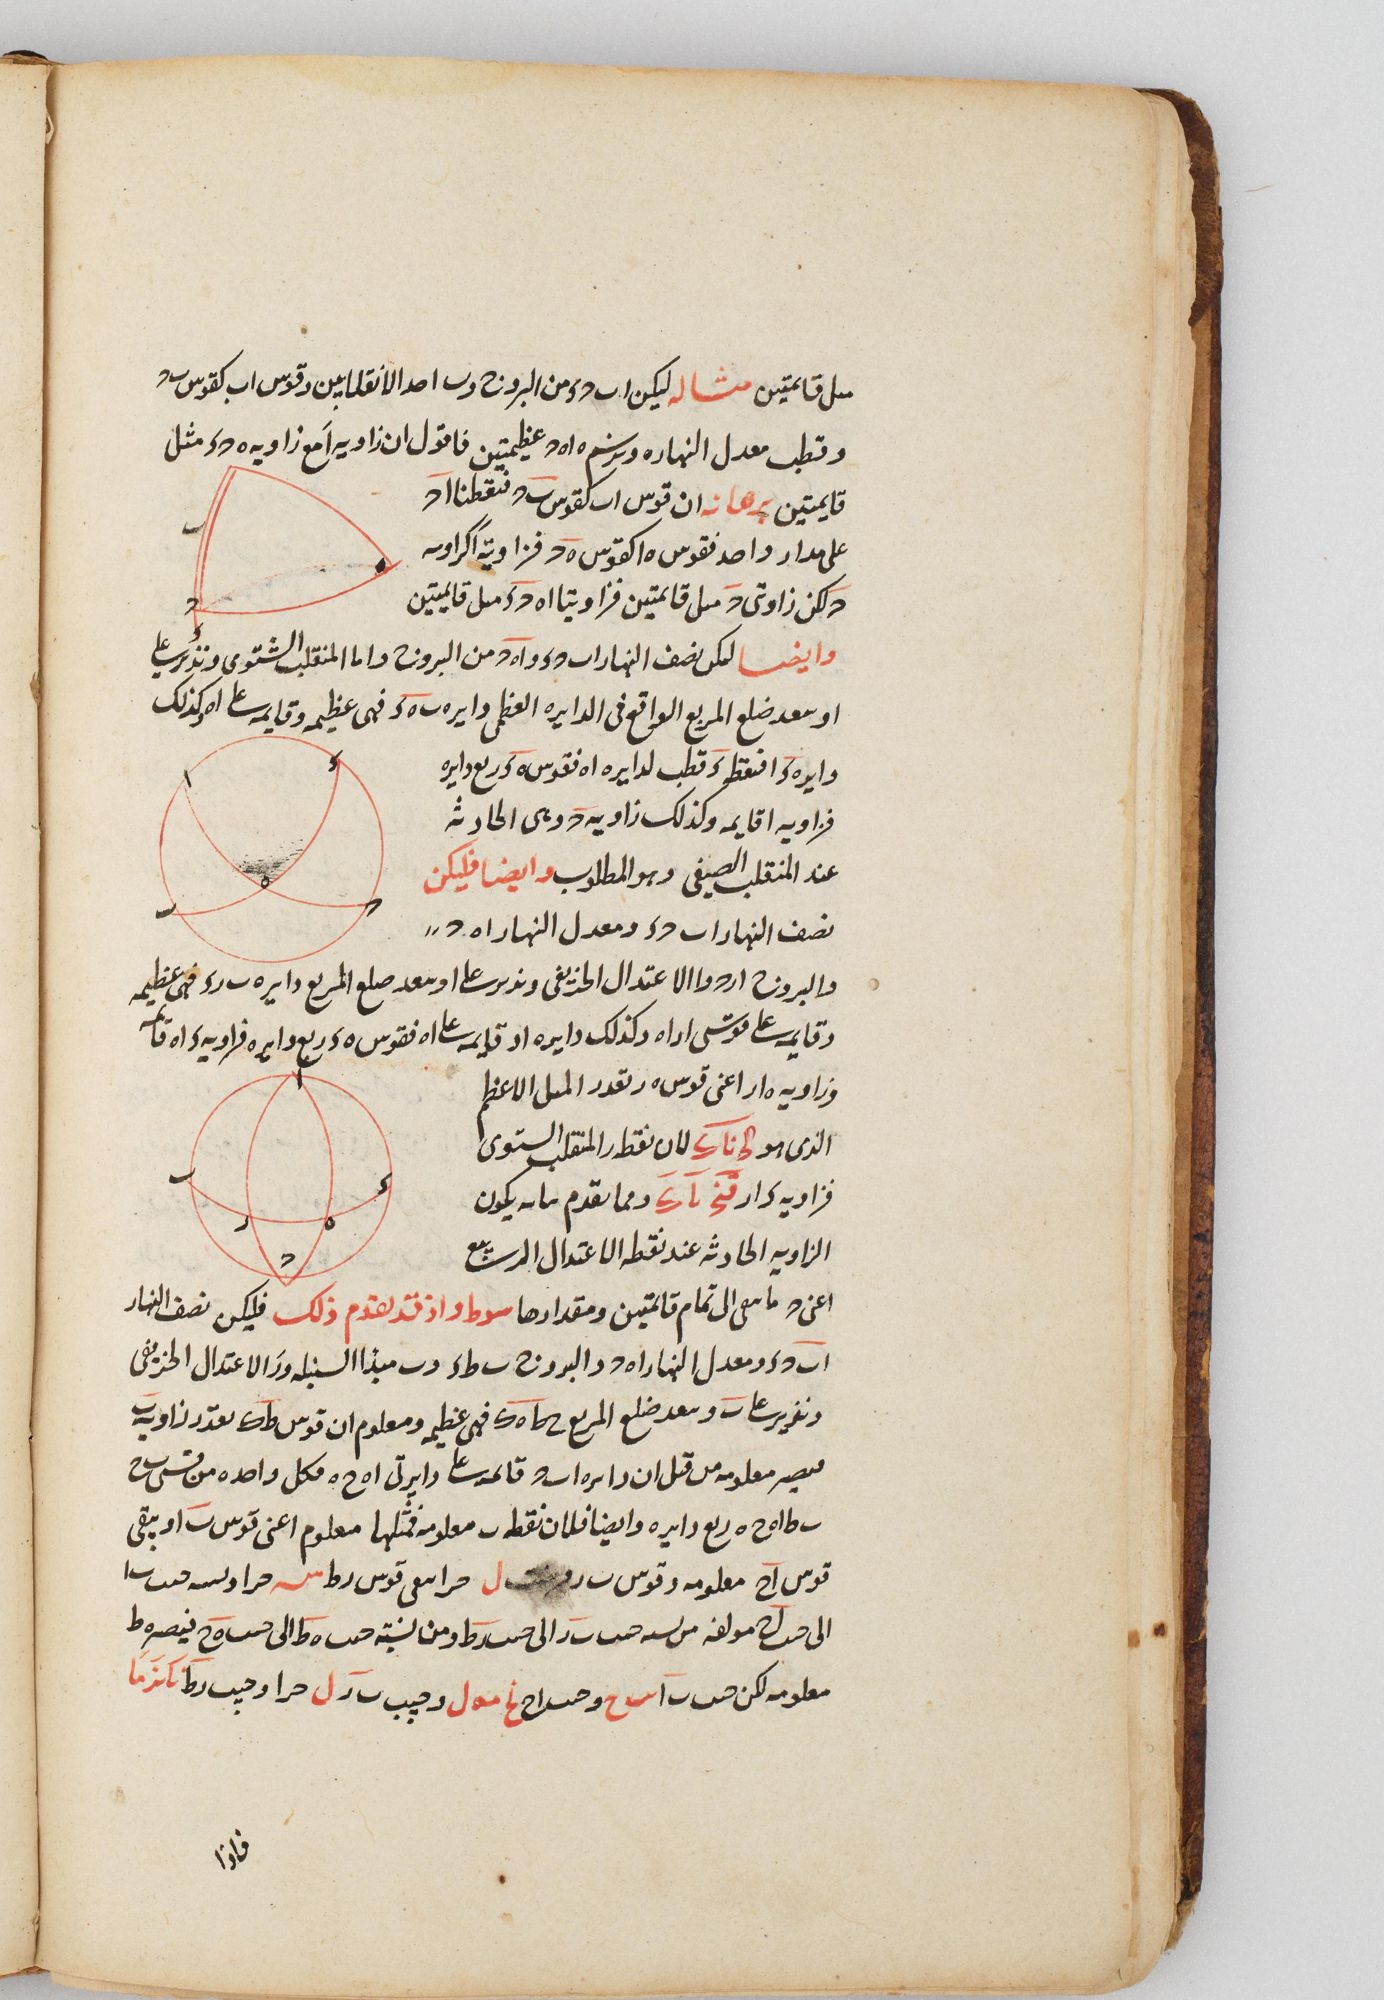 مثل قايمتين مثاله ليكن اب حء من البروج وب احد الانقلابين وقوس اب كقوس ب ح
وقطب معدل النهار ه ونرسم ه اه ح عظيمتين فاقول ان زاويه ا مع زاويه ه ح ء مثل
قايمتين برهانه ان قوس اب كقوس ب ح فنقطتا ا ح
على مدار واحد فقوس ه ا كقوس ه ح فزاوية ا كزاويه
ح لكن زاوتى ح مثل قايمتين فزاويتا ا ه ح ء مثل قايمتين
وايضا ليكن نصف النهار اب حء و اه ح من البروج و ا ما المنقلب الشتوى وندير على
ا وببعد ضلع المربع الواقع فى الدايره العظمى دايره ب ه ء فهى عظيمه وقايمه على اه وكذلك
دايره ء ا فنقطه ء قطب لدايره اه فقوس ه ء ربع دايره
فزاويه ا قايمه وكذلك زاويه ح وهى الحادثه
عند المنقلب الصيفى وهو المطلوب وايضا فليكن
نصف النهار اب ح ء ومعدل النهار اه ح
والبروج ا ر ح و ا الاعتدال الخريفى وندير على ا وببعد ضلع المربع دايره ب ر ء فهى عظيمه
وقايمه على قوسى ار اه وكذلك دايره ا ء قايمه على اه فقوس ه ء ربع دايره فزاويه ء اه قايمه
وزاويه ه ار اعنى قوس ه ر بقدر الميل الاعظم
الذى هو لان نقطه ر المنقلب الشتوى
فزاويه ء ار ومما تقدم بيانه يكون
الزاويه الحادثه عند نقطه الاعتدال الربيعى
اعنى ح ما بقى الى تمام قائمتين ومقدارها واذ قد تقدم ذلك فليكن نصف النهار
اب ح ء ومعدل النهار اه ح والبروج ب ط ء و ب مبدأ السنبله و ر الاعتدال الخريفى
وندير على ب وببعد ضلع المربع ح ط ه ك فهى عظيمه ومعلوم ان قوس ط ك بقدر زاويه ب
فيصير معلومه من قبل ان دايره اب ح قائمه على دايرتى اه ح ه فكل واحده من قسى ب ح
ب ط اه ح ه ربع دايره وايضا فلان نقطه ب معلومه فميلها معلوم اعنى قوس ب ا ويبقى
قوس ا ح معلومه وقوس ب ر ل جزا يبقى قوس ر ط س جزا ونسبه جيب ب ا
الى جيب ا ح مولفه من نسبه جيب ب ر الى جيب ر ط ومن نسبة جيب ه ط الى جيب ه ح فيصير ه ط
معلومه لكن جيب ب ا وجيب ا ح وجيب ب ر ل جزا وجيب ر ط
فاذا
ب
ه
ح
ء
ا
ء
ه
ب
ح
ا
ب
ء
ر
ه
ح